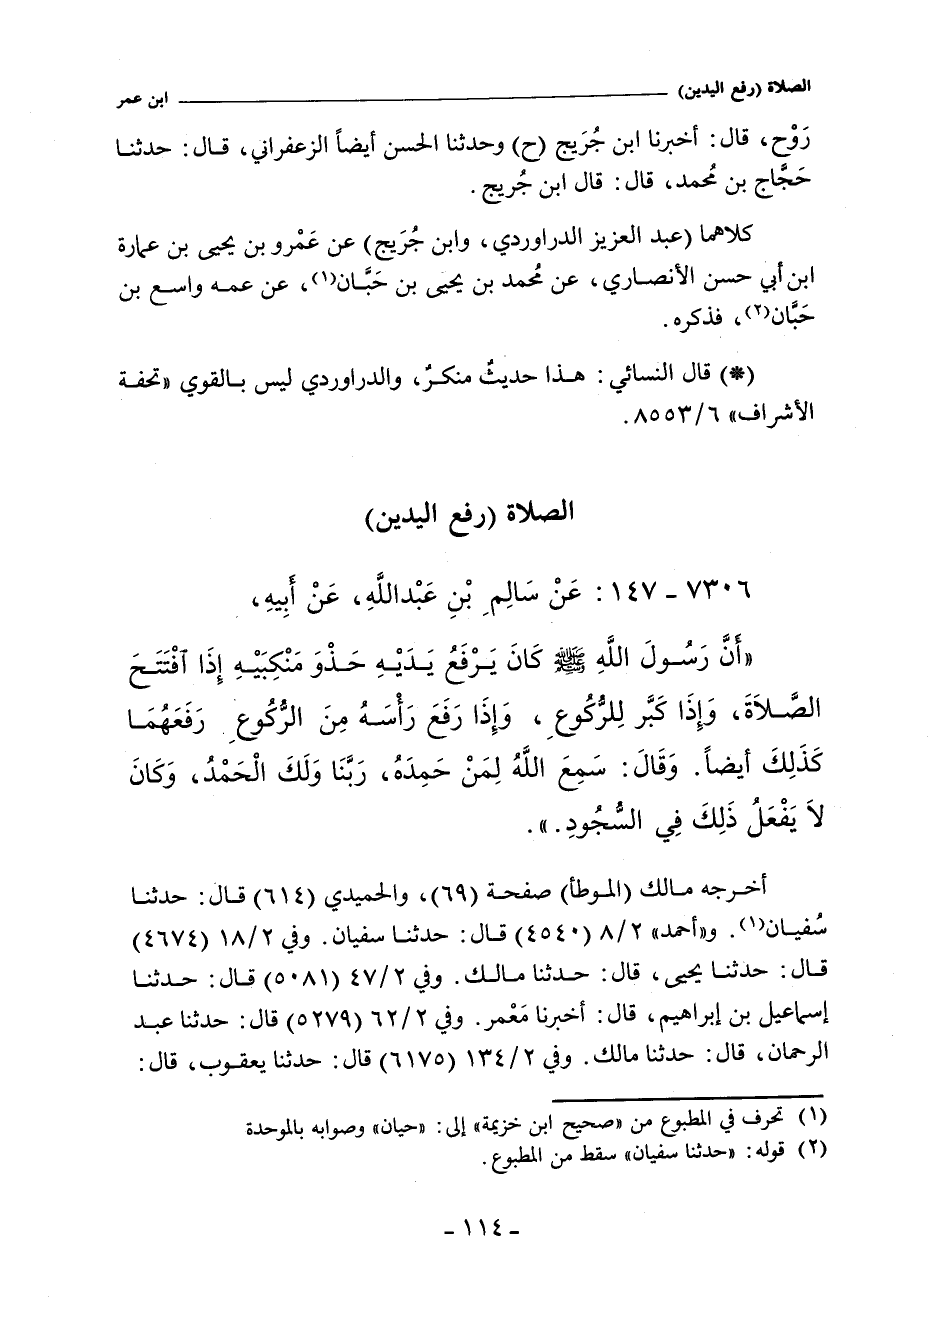 الصلاة (رفع اليدين) ابن عمر
رَوْح، قال: أخبرنا ابن جُرَيج (ح) وحدثنا الحسن أيضاً الزعفراني، قال: حدثنا
حَجَّاج بن مُحمد، قال: قال ابن جُريج.
كلاهما (عبد العزيز الدراوردي، وابن جُرَيج) عن عَمْرو بن يحيى بن عمارة
ابن أبي حسن الأنصاري، عن مُحمد بن يحيى بن حَبَّان(١)، عن عمه واسع بن
حَبَّان(٢)، فذكره.
(*) قال النسائي: هذا حديثٌ منكرٌ، والدراوردي ليس بالقوي «تحفة
الأشراف» ٨٥٥٣/٦.
الصلاة (رفع اليدين)
٧٣٠٦ - ١٤٧: عَنْ سَالِمِ بْنِ عَبْدِاللَّهِ، عَنْ أَبِيهِ،
«أَنَّ رَسُولَ اللَّهِ ﷺ كَانَ يَرْفَعُ يَدَيْهِ حَذْوَ مَنْكِبَيْهِ إِذَا آفْتَتَحَ
الصَّلاَةَ، وَإِذَا كَبَّر لِلرُّكُوعِ، وَإِذَا رَفَعَ رَأْسَهُ مِنَ الرُّكُوعِ رَفَعَهُمَا
كَذَلِكَ أيضاً. وَقَالَ: سَمِعَ اللَّهُ لِمَنْ حَمِدَهُ، رَبَّنَا وَلَكَ الْحَمْدُ، وَكَانَ
لاَ يَفْعَلُ ذَلِكَ فِي السُّجُودِ.».
أخرجه مالك (الموطأ) صفحة (٦٩)، والحميدي (٦١٤) قال: حدثنا
سُفيان(١). و«أحمد» ٨/٢ (٤٥٤٠) قال: حدثنا سفيان. وفي ١٨/٢ (٤٦٧٤)
قال: حدثنا يحيى، قال: حدثنا مالك. وفي ٤٧/٢ (٥٠٨١) قال: حدثنا
إسماعيل بن إبراهيم، قال: أخبرنا مَعْمر. وفي ٦٢/٢ (٥٢٧٩) قال: حدثنا عبد
الرحمان، قال: حدثنا مالك. وفي ١٣٤/٢ (٦١٧٥) قال: حدثنا يعقوب، قال:
(١) تحرف في المطبوع من «صحيح ابن خزيمة» إلى: «حيان» وصوابه بالموحدة
(٢) قوله: «حدثنا سفيان» سقط من المطبوع.
- ١١٤ -